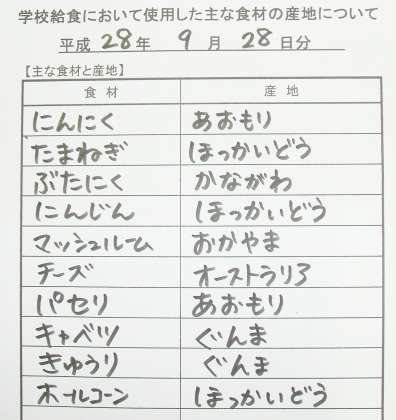 学校給食において使用した主な食材の産地について
平成 28 年 9 月 28 日分
【主な食材と産地】
食材 産地
にんにく あおもり
たまねぎ ほっかいどう
ぶたにく かながわ
にんじん ほっかいどう
マッシュルーム おかやま
チーズ オーストラリア
パセリ あおもり
キャベツ ぐんま
きゅうり ぐんま
ホールコーン ほっかいどう